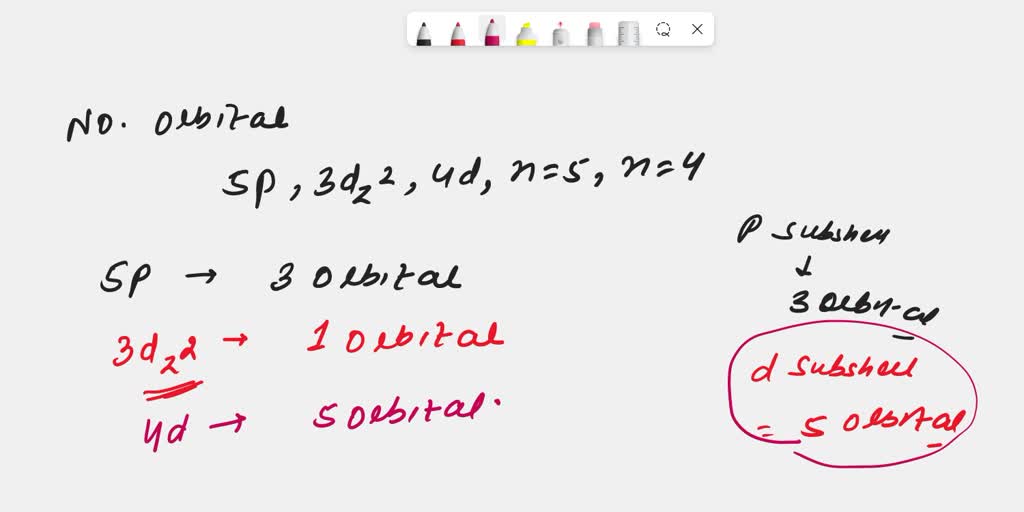 No. orbital
5p, 3dz², 4d, n=5, n=4
5p → 3 orbital
3dz² → 1 orbital
4d → 5 orbital.
P subshell
↓
3 orbital
d subshell
= 5 orbital